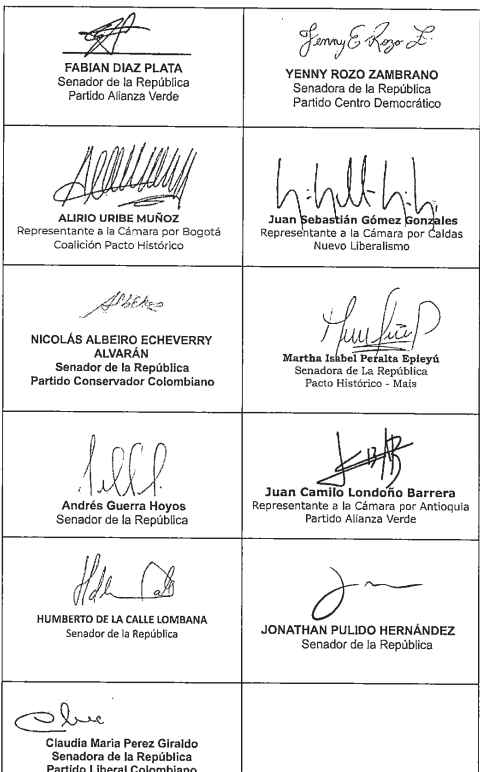 FABIAN DIAZ PLATA
Senador de la República
Partido Alianza Verde
Jenny E Rozo Z.
YENNY ROZO ZAMBRANO
Senadora de la República
Partido Centro Democrático
ALIRIO URIBE MUÑOZ
Representante a la Cámara por Bogotá
Coalición Pacto Histórico
Juan Sebastián Gómez Gonzales
Representante a la Cámara por Caldas
Nuevo Liberalismo
NICOLÁS ALBEIRO ECHEVERRY
ALVARÁN
Senador de la República
Partido Conservador Colombiano
Martha Isabel Peralta Epieyú
Senadora de La República
Pacto Histórico - Mais
Andrés Guerra Hoyos
Senador de la República
Juan Camilo Londoño Barrera
Representante a la Cámara por Antioquia
Partido Alianza Verde
HUMBERTO DE LA CALLE LOMBANA
Senador de la República
JONATHAN PULIDO HERNÁNDEZ
Senador de la República
Claudia Maria Perez Giraldo
Senadora de la República
Partido Liberal Colombiano